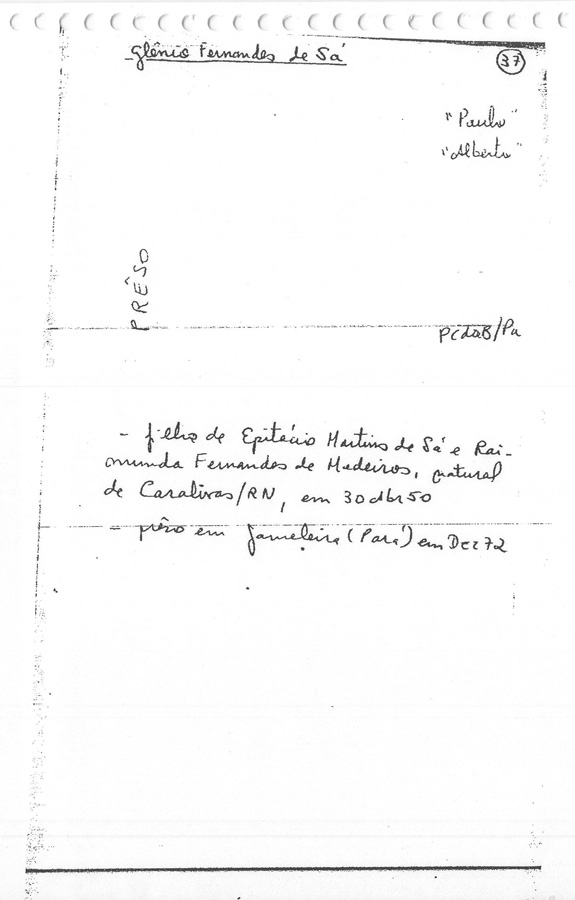 Glênio Fernandes de Sá
37
"Paulo"
"Alberto"
PRÊSO
PCdoB/Pa
- filho de Epitácio Martins de Sá e Rai-
munda Fernandes de Medeiros, natural
de Caraúbas/RN, em 30 Abr 50
- prêso em (Pará) em Dez 72